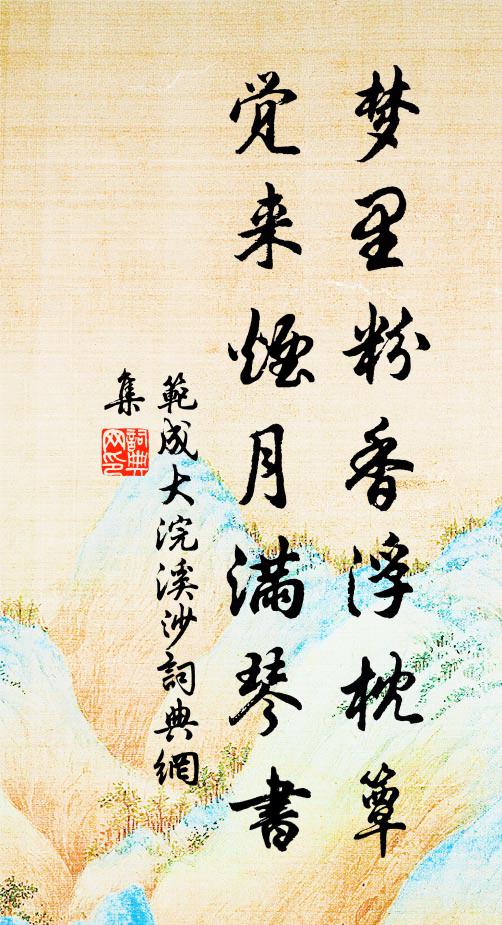 梦里粉香浮枕簟
觉来烟月满琴书
範成大浣溪沙詞典網
集
詞典网印